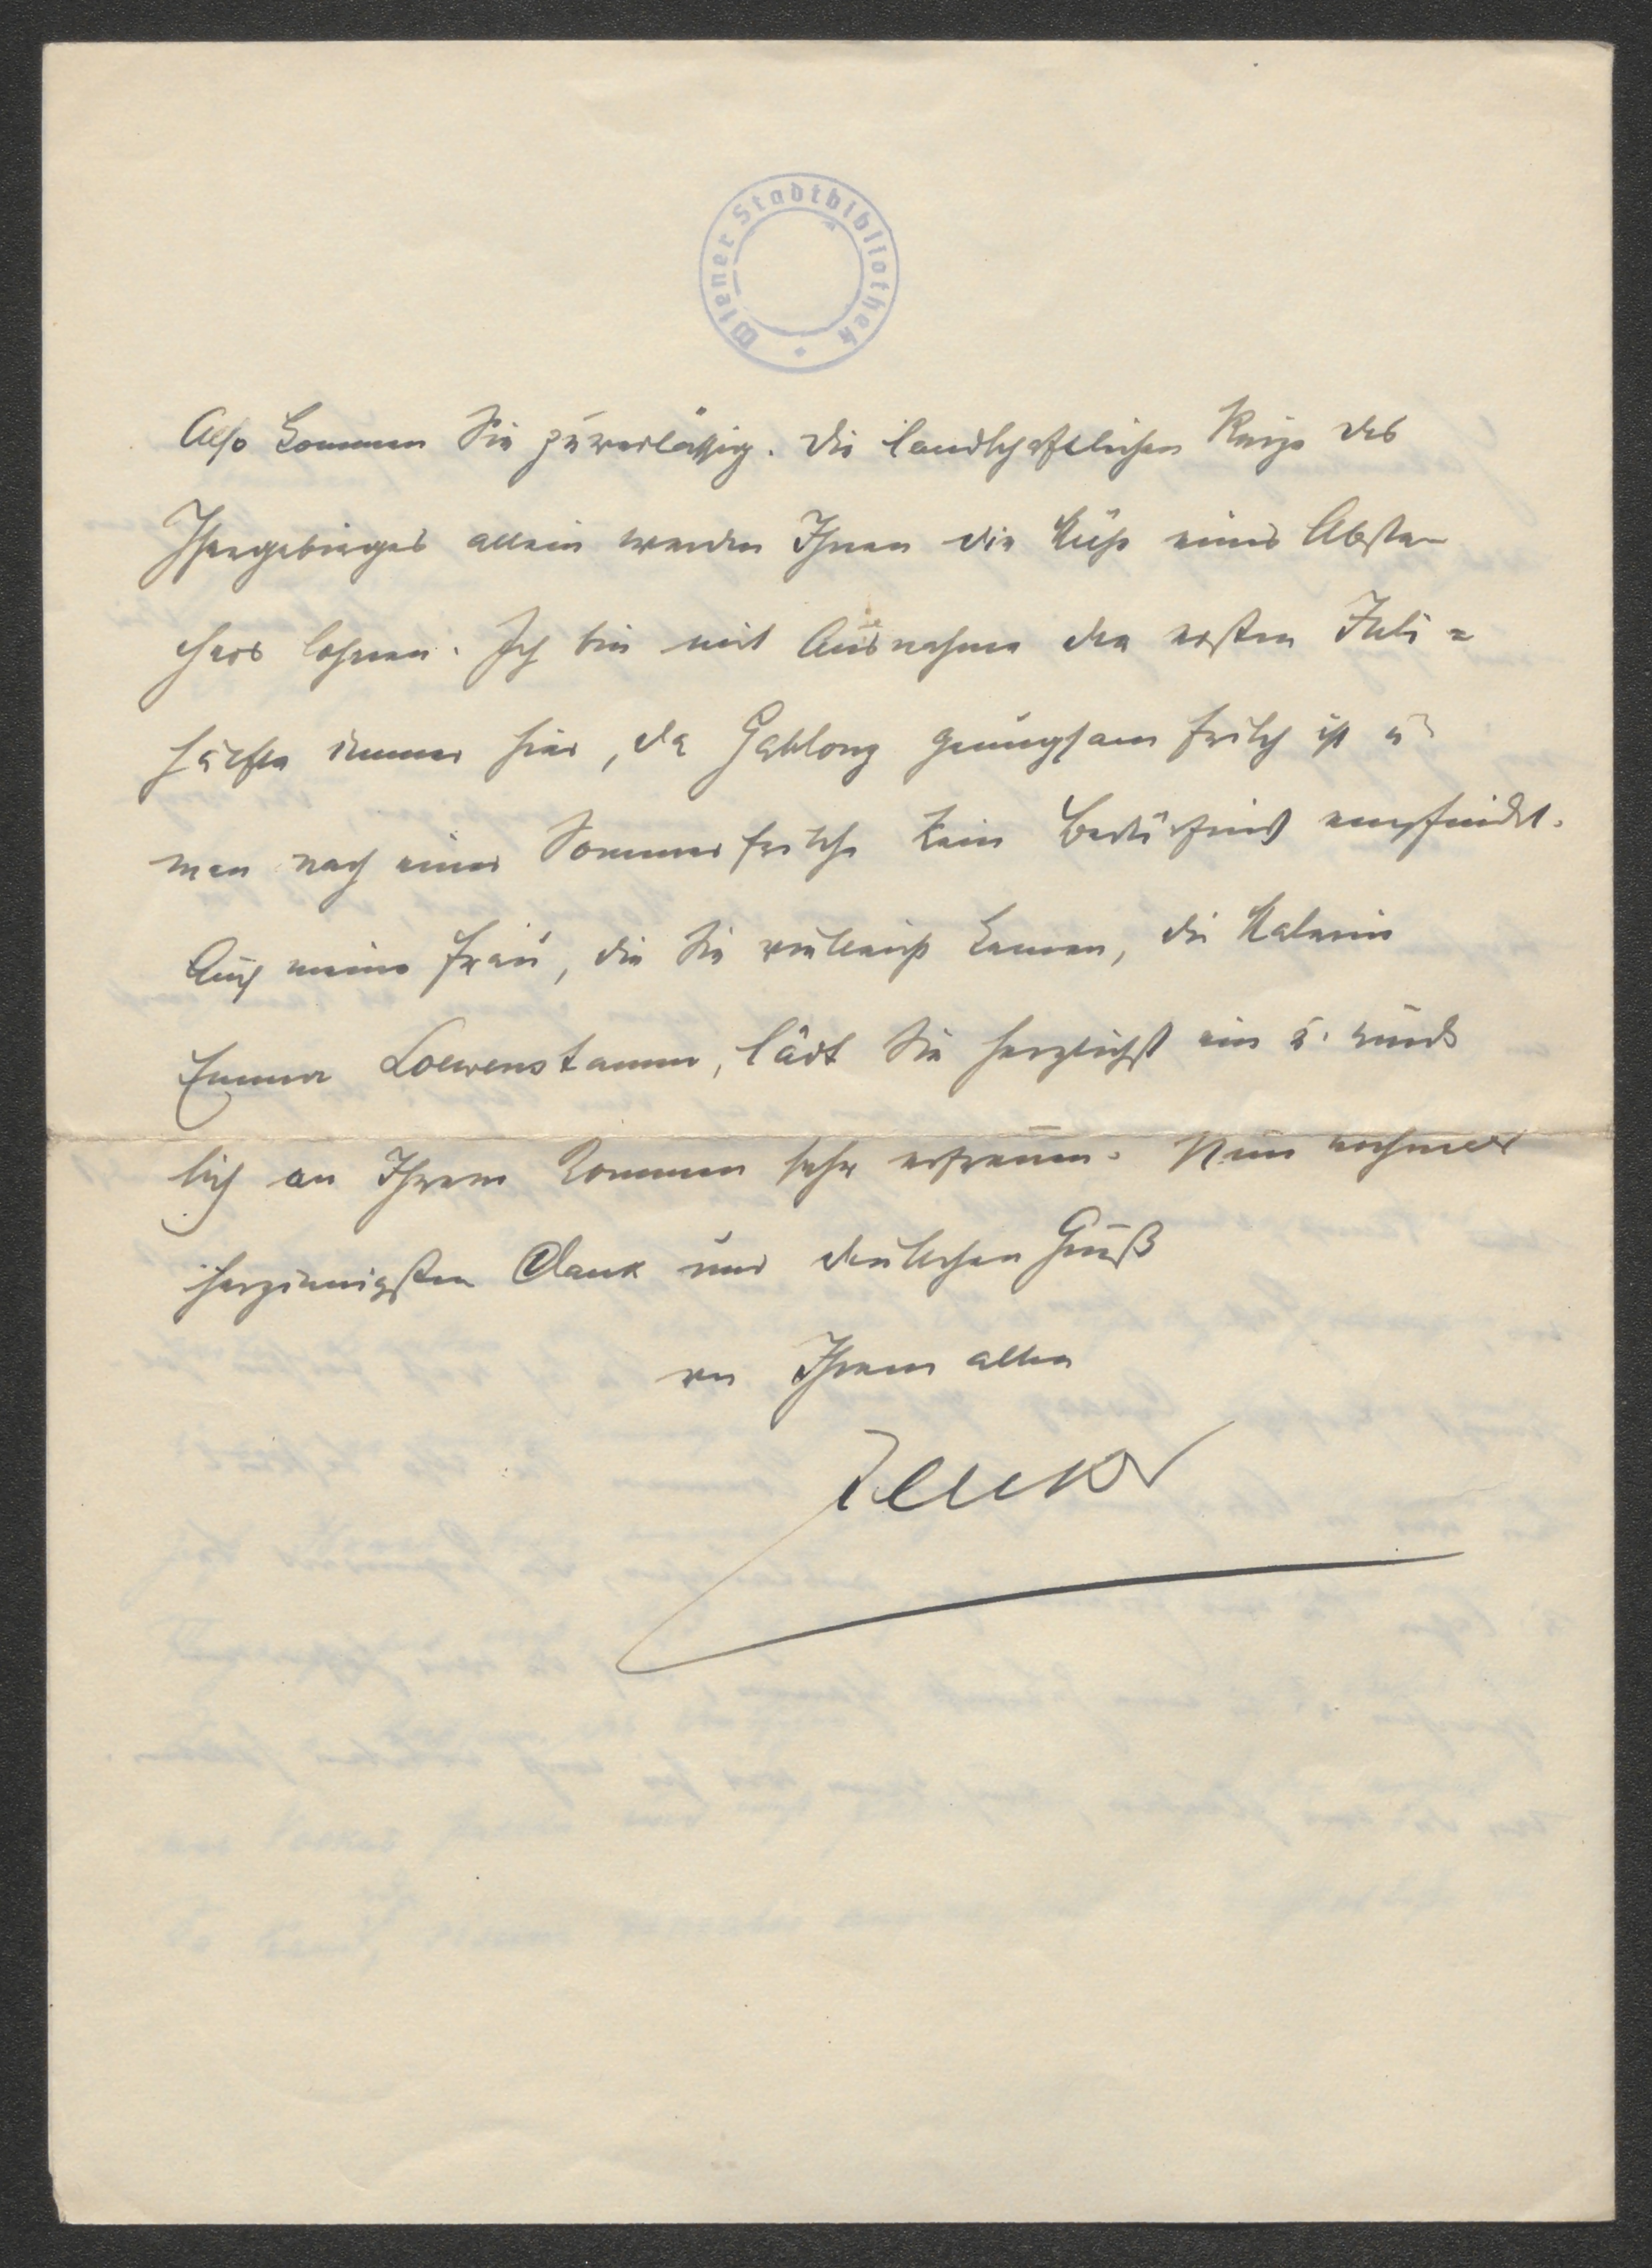 Wiener Stadtbibliothek
Also kommen Sie zuverlässig. Die landschaftlichen Reize des
Isergebirges allein werden Ihnen die Mühe eines Abste-
chers lohnen. Ich bin mit Ausnahme der ersten Juli =
hälfte immer hier, da Gablonz genugsam frisch ist u
man nach einer Sommerfrische kein Bedürfnis empfindet.
Auch meine Frau, die Sie vielleicht kennen, die Malerin
Emma Loewenstamm, lädt Sie herzlichst ein u.
lich an Ihrem Kommen sehr erfreuen. Nun nochmal
herzinnigsten Dank und deutschen Gruß
von Ihrem alten